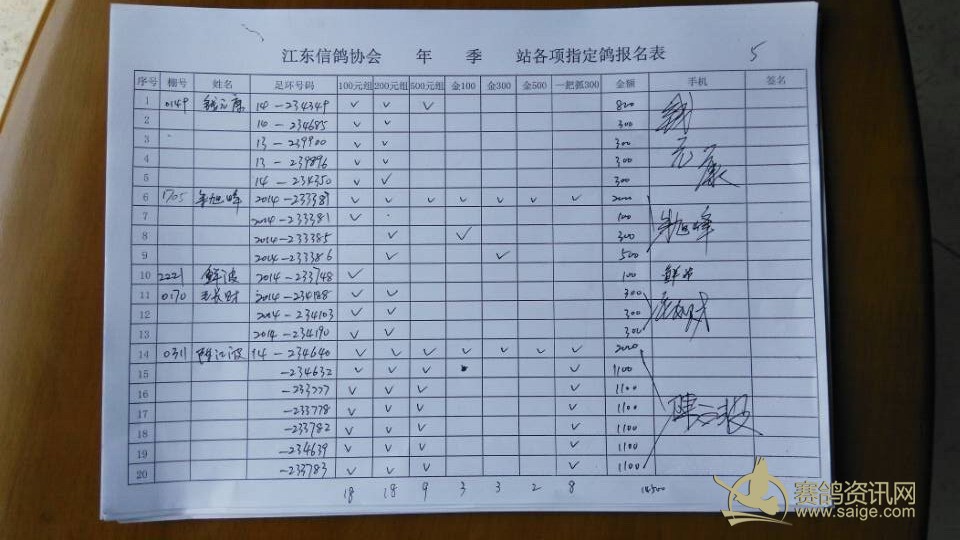 江东信鸽协会 年 季 站各项指定鸽报名表 5
序号 棚号 姓名 足环号码 100元组 200元组 500元组 金100 金300 金500 一把抓300 金额 手机 签名
1 0149 钱元康 14-234349 ✓ ✓ ✓ 800 钱元康
2 14-234685 ✓ ✓ 300
3 13-239900 ✓ ✓ 300
4 13-239896 ✓ ✓ 300
5 14-234350 ✓ ✓ 300
6 1705 朱旭峰 2014-233389 ✓ ✓ ✓ ✓ ✓ ✓ ✓ 2000 朱旭峰
7 2014-233381 ✓ 100
8 2014-233385 ✓ ✓ 300
9 2014-233386 ✓ ✓ 500
10 2221 鲜波 2014-233748 ✓ 100 鲜波
11 0170 2014-234188 ✓ ✓ 300
12 2014-234103 ✓ ✓ 300
13 2014-234190 ✓ ✓ 300
14 0311 陈江波 14-234640 ✓ ✓ ✓ ✓ ✓ ✓ ✓ 2000 陈江波
15 -234632 ✓ ✓ ✓ ✓ 1100
16 -233777 ✓ ✓ ✓ ✓ 1100
17 -233778 ✓ ✓ ✓ ✓ 1100
18 -233782 ✓ ✓ ✓ ✓ 1100
19 -234639 ✓ ✓ ✓ ✓ 1100
20 -233783 ✓ ✓ ✓ ✓ 1100
18 18 9 3 3 2 8 14500
赛鸽资讯网
www.saige.com